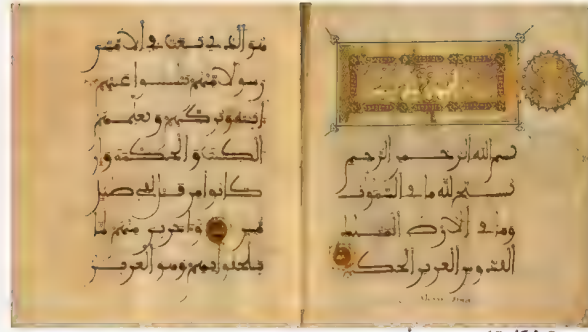 بسم الله الرحمن الرحيم
يسبح لله ما في السموت
وما في الارض الملك
القدوس العزيز الحكيم
هو الذي بعث في الامين
رسولا منهم يتلوا عليهم
ايته ويزكيهم ويعلمهم
الكتب والحكمة وان
كانوا من قبل لفي ضلل
مبين واخرين منهم لما
يلحقوا بهم وهو العزيز